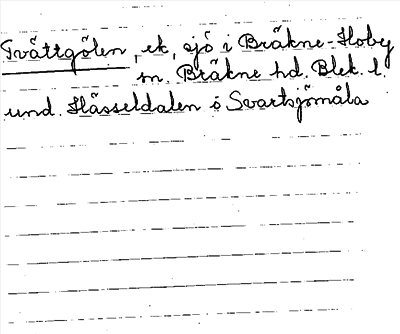 Tvättgölen, ek., sjö i Bräkne-Hoby
sn. Bräkne hd. Blek. l.
und. Hässeldalen o Svartsjömåla